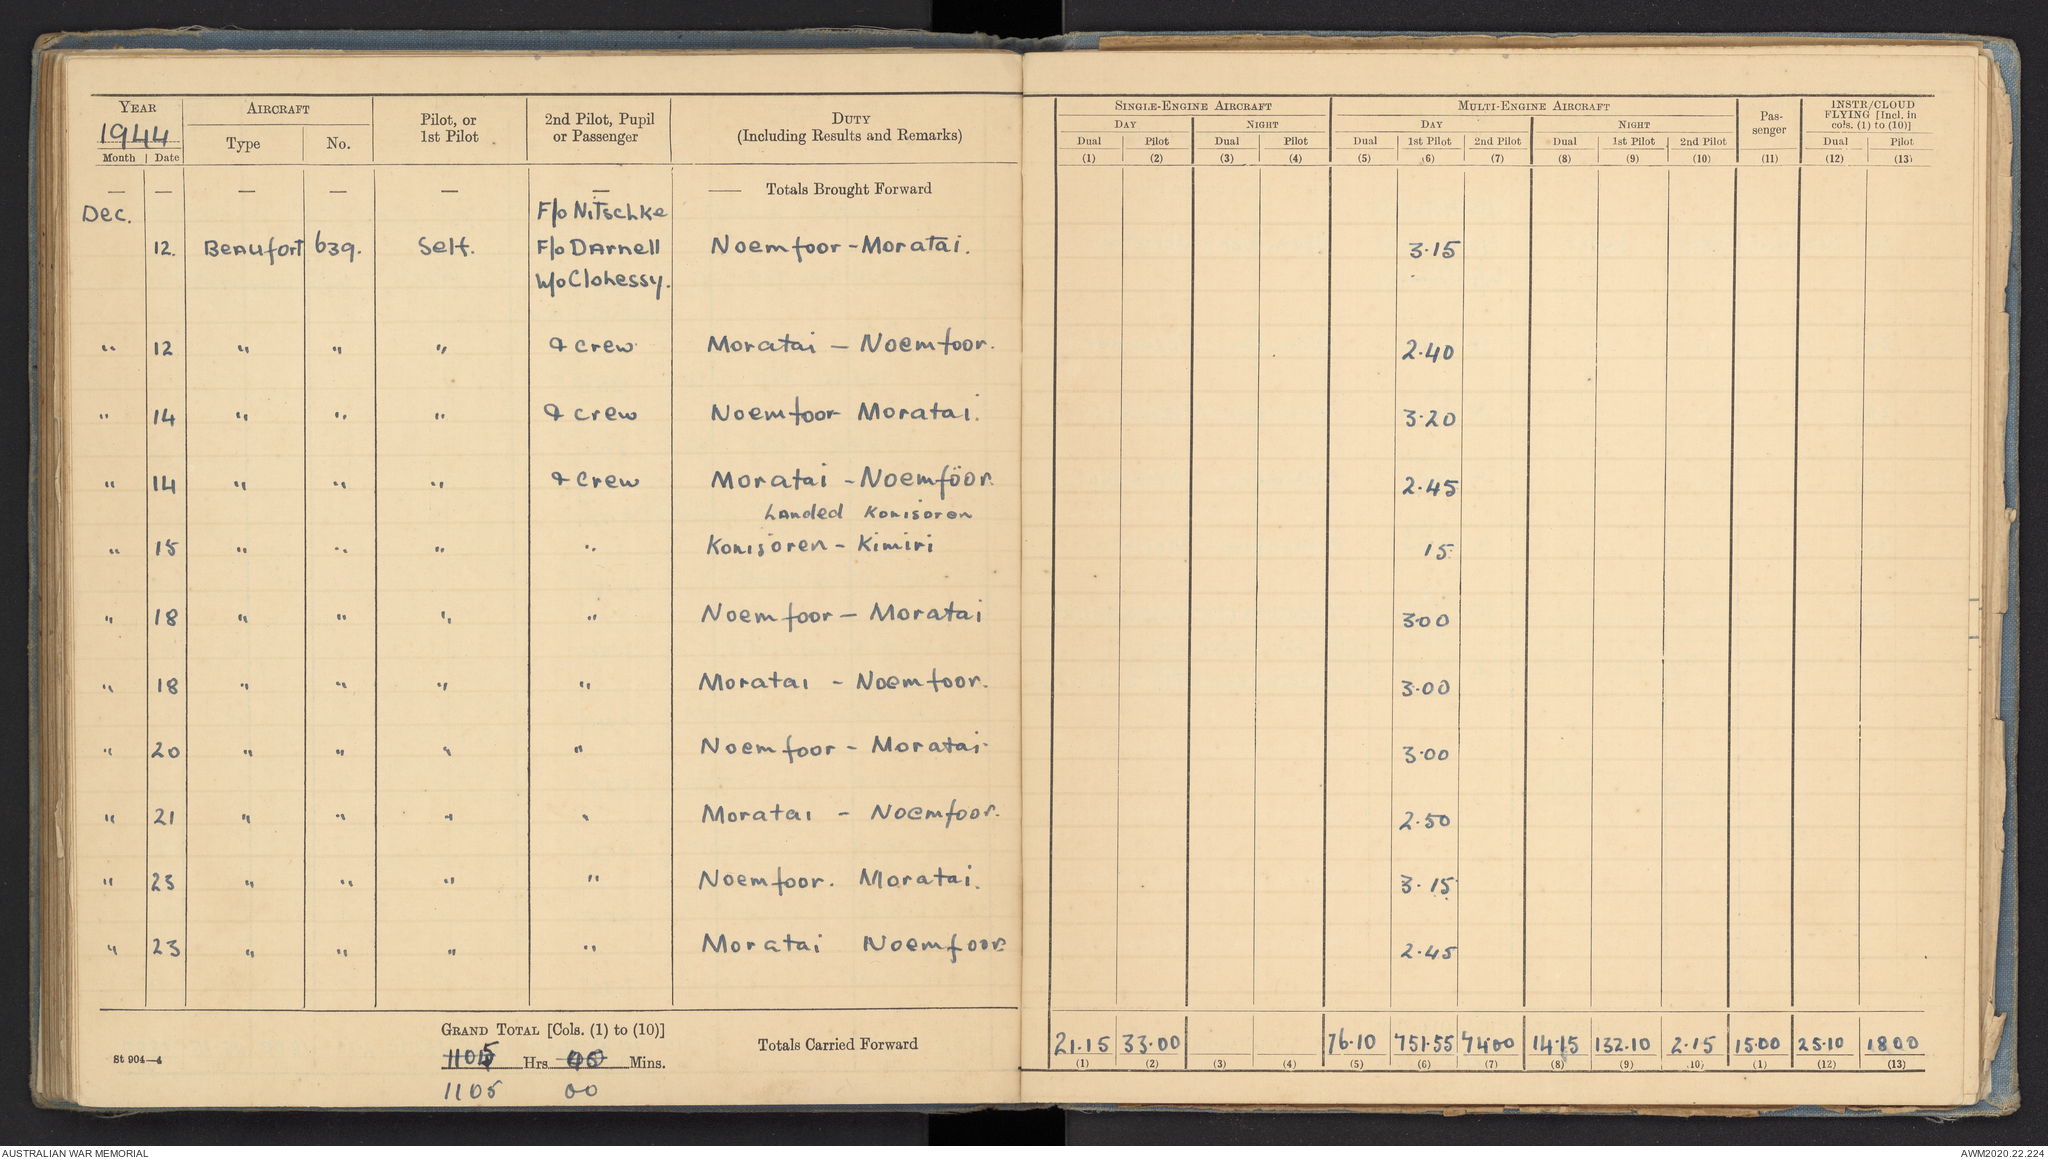 YEAR 1944 AIRCRAFT Pilot, or 1st Pilot 2nd Pilot, Pupil or Passenger DUTY (Including Results and Remarks)
Month Date Type No.
— — — — — — — Totals Brought Forward
Dec. F/o Nitschke
12. Beaufort 639. Self. F/o Darnell Noemfoor - Moratai.
W/o Clohessy.
" 12 " " " & crew Moratai - Noemfoor.
" 14 " " " & crew Noemfoor Moratai.
" 14 " " " & crew Moratai - Noemfoor.
Landed Konisoren
" 15 " " " " Konisoren - Kimiri
" 18 " " " " Noemfoor - Moratai
" 18 " " " " Moratai - Noemfoor.
" 20 " " " " Noemfoor - Moratai
" 21 " " " " Moratai - Noemfoor.
" 23 " " " " Noemfoor. Moratai.
" 23 " " " " Moratai Noemfoor.
GRAND TOTAL [Cols. (1) to (10)]
1105 Hrs 40 Mins.
1105 00
Totals Carried Forward
St 904—4
SINGLE-ENGINE AIRCRAFT MULTI-ENGINE AIRCRAFT Passenger INSTR/CLOUD FLYING [Incl. in cols. (1) to (10)]
DAY NIGHT DAY NIGHT
Dual Pilot Dual Pilot Dual 1st Pilot 2nd Pilot Dual 1st Pilot 2nd Pilot Dual Pilot
(1) (2) (3) (4) (5) (6) (7) (8) (9) (10) (11) (12) (13)
3.15
2.40
3.20
2.45
15
3.00
3.00
3.00
2.50
3.15
2.45
21.15 33.00 76.10 751.55 74.00 14.15 132.10 2.15 15.00 25.10 18.00
(1) (2) (3) (4) (5) (6) (7) (8) (9) (10) (1) (12) (13)
AUSTRALIAN WAR MEMORIAL
AWM2020.22.224